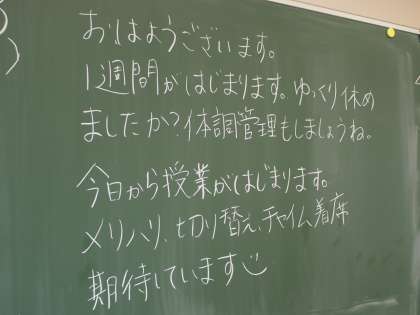 おはようございます。
1週間がはじまります。ゆっくり休め
ましたか?体調管理もしましょうね。
今日から授業がはじまります。
メリハリ、切り替え、チャイム着席
期待しています